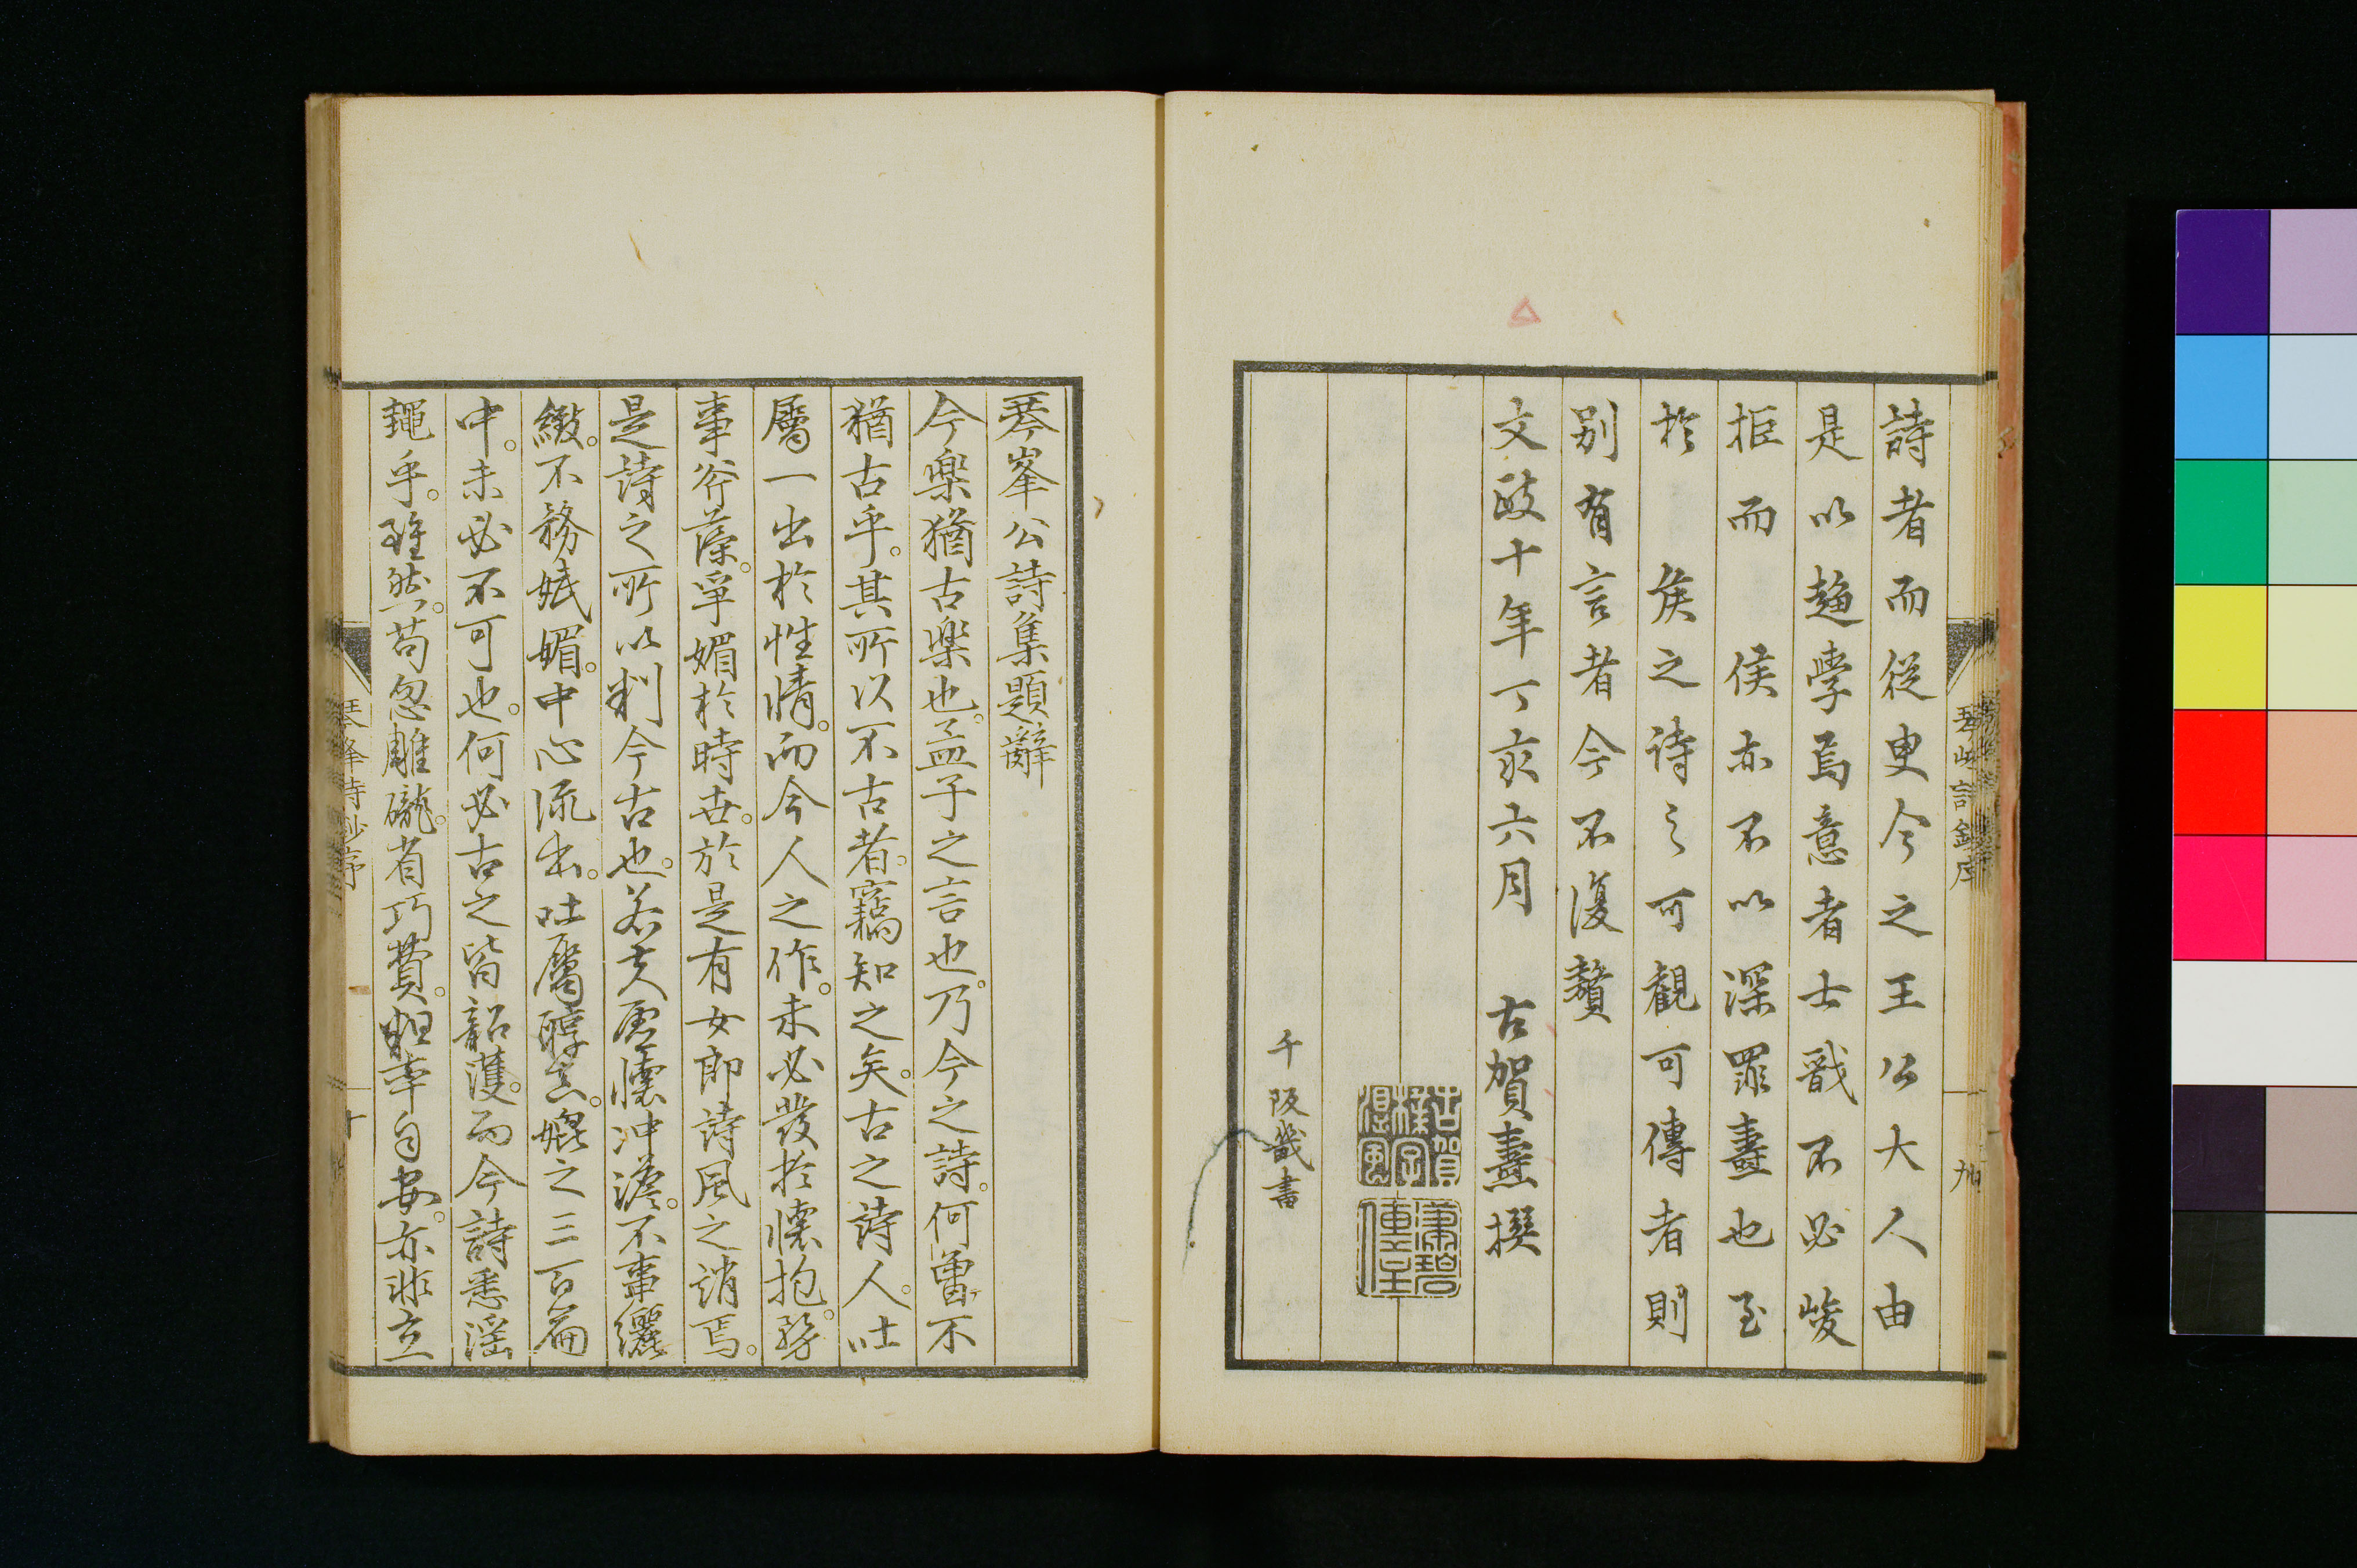 詩者而從叟今之王公大人由
是以趨學焉意者士戩不必峻
拒而　侯亦不以深罪燾也至
於　侯之詩之可觀可傳者則
別有言者今不復贅
文政十年丁亥六月　古賀燾撰
千阪畿書
琴峯公詩集題辭
今樂猶古樂也。孟子之言也。乃今之詩。何曾不
猶古乎。其所以不古者。竊知之矣。古之詩人。吐
屬一出於性情。而今人之作。未必發於懷抱。務
事斧藻。爭媚於時世。於是有女郎詩風之誚焉。
是詩之所以判今古也。若夫虛懷冲澹。不事纚
緻。不務娬媚。中心流出。吐屬醇古。媲之三百篇
中。未必不可也。何必古之皆韶濩。而今詩悉淫
哇乎。雖然。苟忽雕礲。省巧費。粗率自安。亦非立
琴峯詩鈔序
十